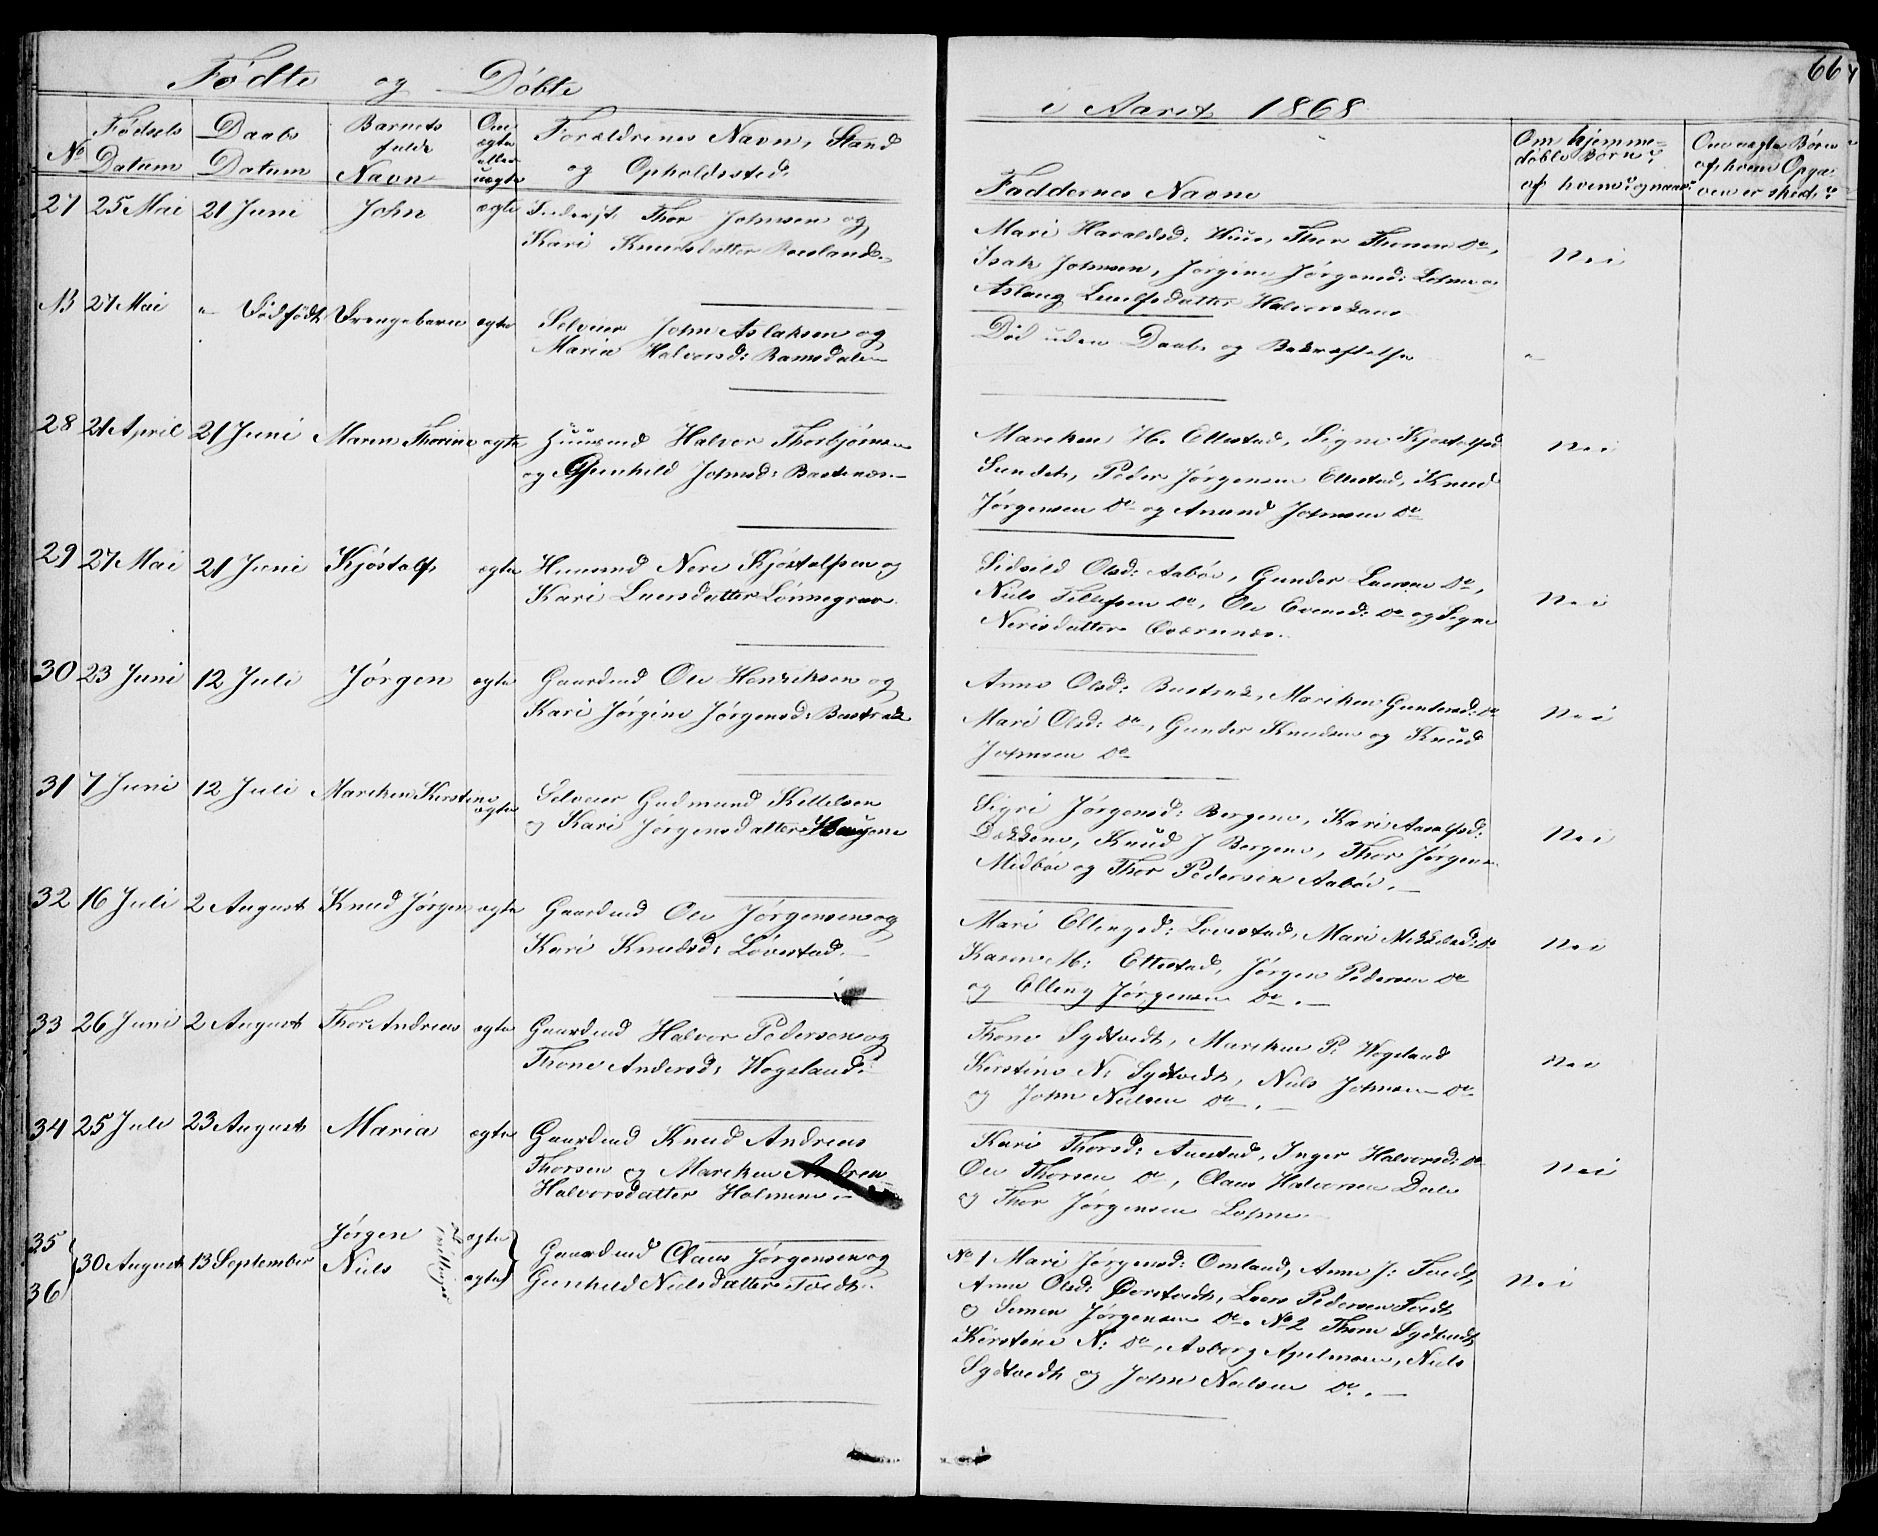 Fødte og Døbte
i Aaret 1868
66
No
Fødsels Datum
Daabs Datum
Barnets fulde Navn
Om ægte eller uægte
Forældrenes Navn, Stand
og Opholdssted.
Faddernes Navne
Om hjemme-
døbte Børn?
af hvem? og naar?
Om uægte Børn
af hvem Opga-
ven er skedt?
27 25 Mai 21 Juni John ægte
Thor Johnsen og
Kari Knudsdatter
Mari Haraldsd: Thor Do,
Isak Johnsen, Jørgine Jørgensd: og
Aslaug datter
Nei
NB 27 Mai " Dødfødt Drengebarn ægte
Selveier John Aslaksen og
Maria Halvorsd: Ramsdalen
Død uden Daab og Bekræftelse
"
28 21 April 21 Juni Maren Thorine ægte
Huusmd Halvor Thorbjørnsen
og Gunhild Johnsd:
Mareken H. Ellestad, Signe Kjøstolfsd
Sundet, Peder Jørgensen Ellestad, Knud
Jørgensen Do og Amund Johnsen Do
Nei
29 27 Mai 21 Juni Kjøstolf ægte
Huusmd Neri Kjøstolfsen og
Kari Larsdatter Lønnegrav.
Sidsild Olsd: Aabøe, Gunder Larsen Do,
Niels Tellefsen Do, Ole Do og Signe
Nerisdatter
Nei
30 23 Juni 12 Juli Jørgen ægte
Gaardmd Ole Henriksen og
Kari Jørgine Jørgensd: Bastrak
Anne Olsd: Bastrak, Mareken Gundersd: Do
Mari Olsd: Do, Gunder Knudsen og Knud
Johnsen Do
Nei
31 7 Juni 12 Juli Mareken Kirstine ægte
Selveier Gudmund Kittelsen
og Kari Jørgensdatter Haugene
Sigri Jørgensd: Bergene, Kari
Knud J Bergene, Thor Jørgensen
Midbøe og Thor Pedersen Aabøe.
Nei
32 16 Juli 2 August Knud Jørgen ægte
Gaardmd Ole Jørgensen og
Kari Knudsd: Løvestad.
Mari Ellingsd: Løvestad, Mari Do
Karen M: Ellestad, Jørgen Pedersen Do
og Elling Jørgensen Do.
Nei
33 26 Juni 2 August Thor Andreas ægte
Gaardmd Halvor Pedersen og
Thone Andersd: Wogsland.
Thone Sydtvedt, Mareken P: Wogsland
Kirstine N: Sydtvedt, Niels Johnsen Do
og John Nielsen Do.
Nei
34 25 Juli 23 August Maria ægte
Gaardmd Knud Andreas
Thorsen og Mareken Andrea
Halvorsdatter Holmen
Kari Thorsd: Inger Halvorsd: Do
Ole Thorsen Do, Claus Halvorsen Dale
og Thor Jørgensen
Nei
35
36
30 August 13 September
Jørgen ægte
Niels ægte
Tvillinger
Gaardmd Claus Jørgensen og
Gunhild Nielsdatter Tvedt.
No 1 Mari Jørgensd: Omland, Anne J: Tvedt,
Anne Olsd: Lars Pedersen Tvedt
og Simen Jørgensen Do. No 2 Thone Sydtvedt,
Kirstine N: Do, Niels
Sydtvedt og John Nielsen Do.
Nei